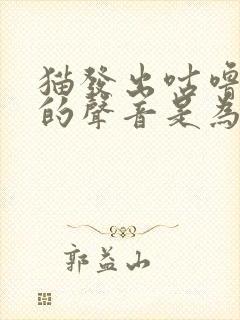 猫發出咕嚕
的聲音是為
郭益山